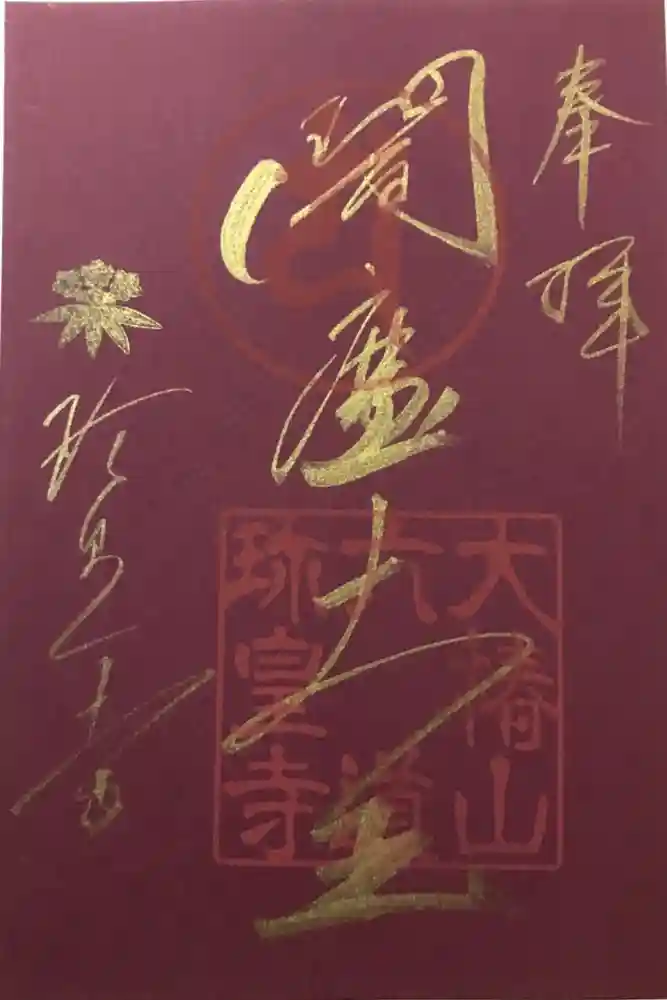 奉拝
閻魔大王
珍皇寺
大椿山
六道
珍皇寺